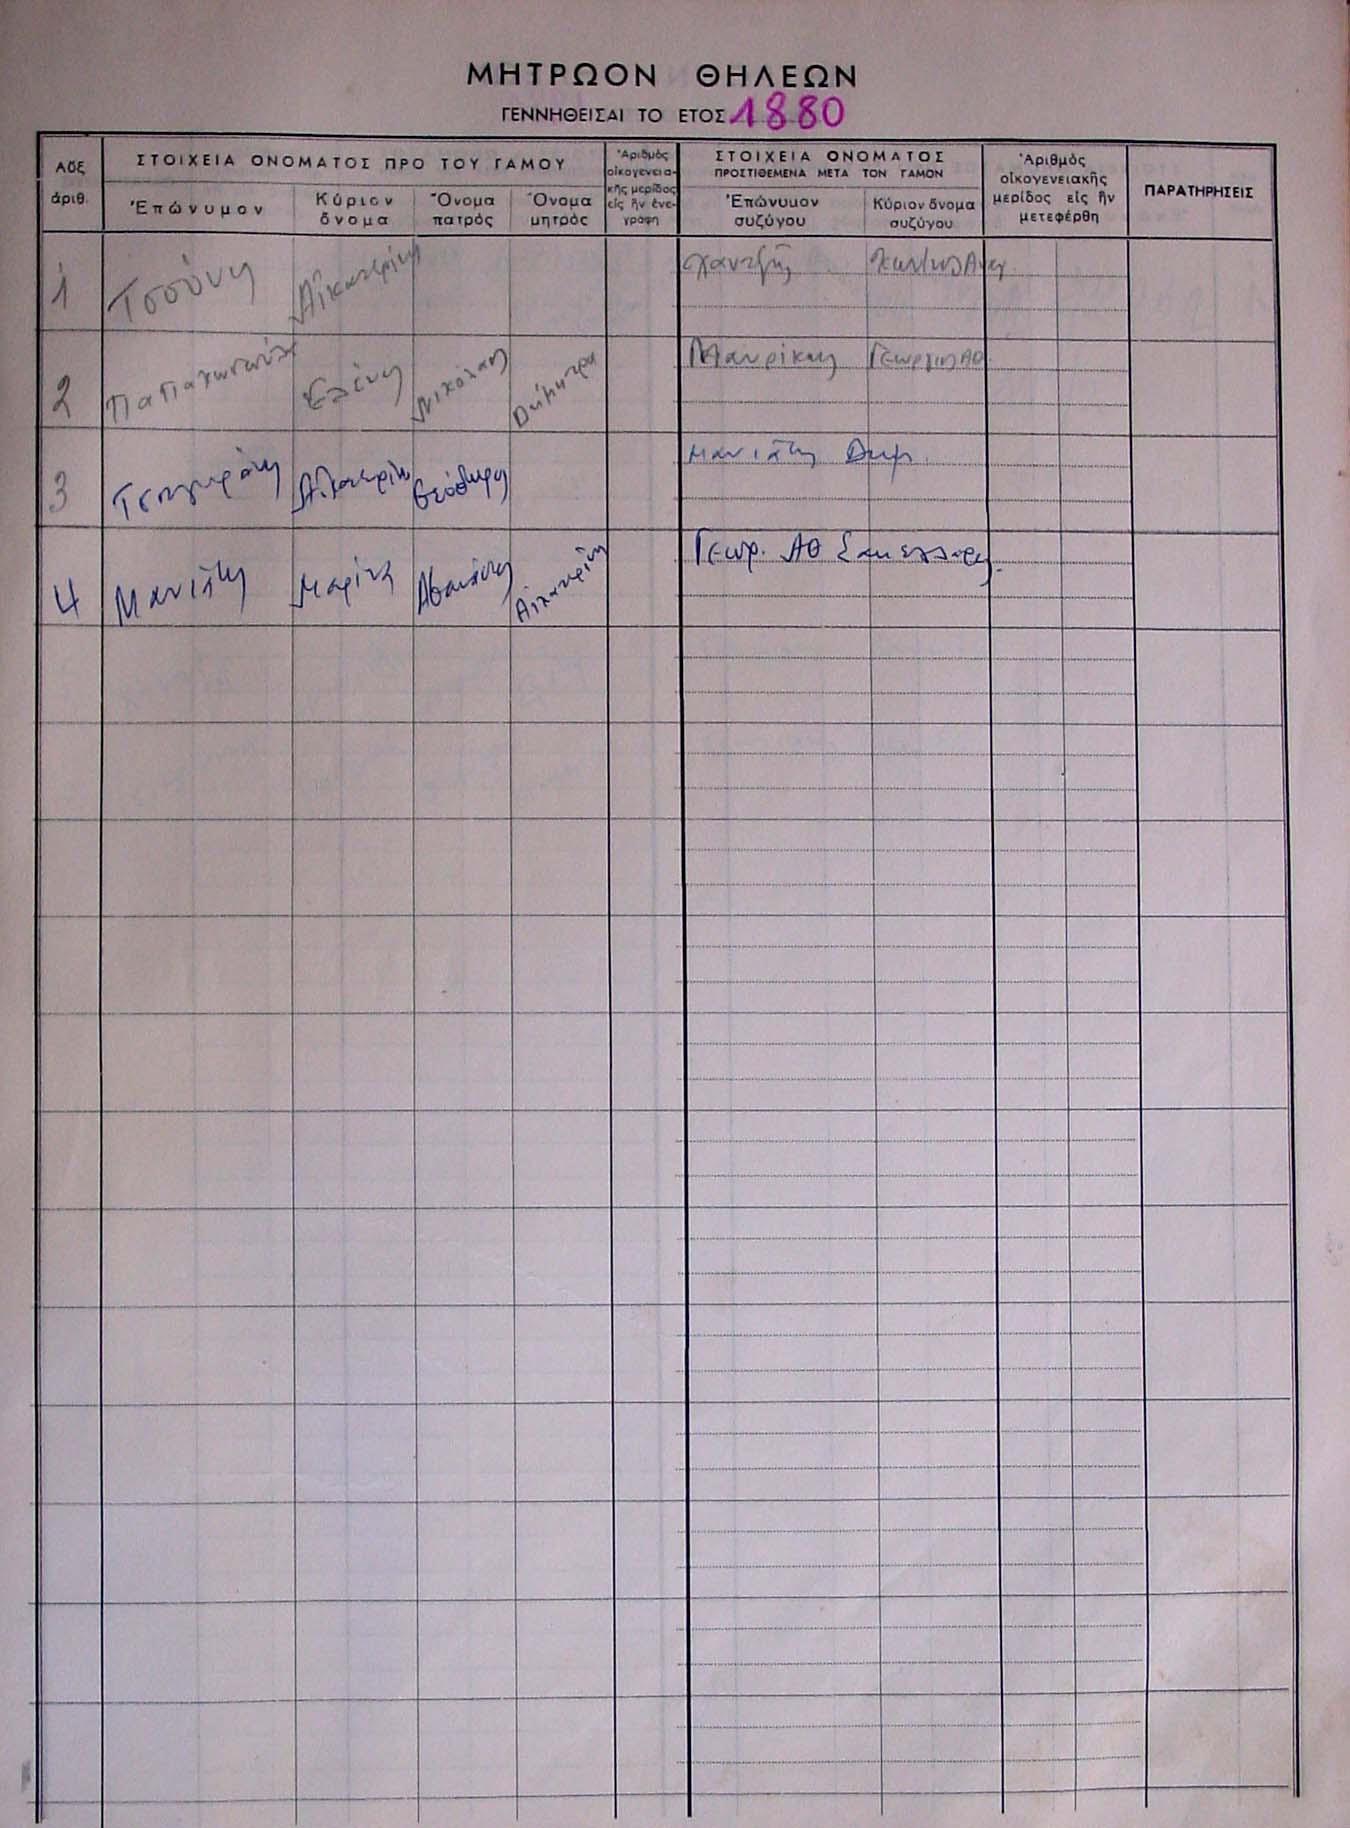 ΜΗΤΡΩΟΝ ΘΗΛΕΩΝ
ΓΕΝΝΗΘΕΙΣΑΙ ΤΟ ΕΤΟΣ 1880
Αὔξ. ἀριθ.
ΣΤΟΙΧΕΙΑ ΟΝΟΜΑΤΟΣ ΠΡΟ ΤΟΥ ΓΑΜΟΥ
Ἐπώνυμον
Κύριον ὄνομα
Ὄνομα πατρός
Ὄνομα μητρός
Ἀριθμὸς οἰκογενεια-κῆς μερίδος εἰς ἣν ἐνε-γράφη
ΣΤΟΙΧΕΙΑ ΟΝΟΜΑΤΟΣ
ΠΡΟΣΤΙΘΕΜΕΝΑ ΜΕΤΑ ΤΟΝ ΓΑΜΟΝ
Ἐπώνυμον συζύγου
Κύριον ὄνομα συζύγου
Ἀριθμὸς οἰκογενειακῆς μερίδος εἰς ἣν μετεφέρθη
ΠΑΡΑΤΗΡΗΣΕΙΣ
1 Τσούνη Αἰκατερίνη
2 Ἑλένη Νικόλαος Δήμητρα
3 Αἰκατερίνη Θεόδωρος Μανιάτης Δημ.
4 Μανιάτη Μαρίνα Ἀθανάσιος Αἰκατερίνη Γεωρ. Αθ Σακελλαρη.